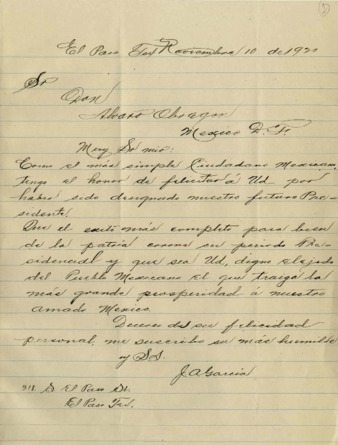 El Paso Tex Noviembre 10 de 1920
Sr
Don
Alvaro Obregon
Mexico D. F.
Muy Sr mio:
Como el más simple Ciudadano Mexicano,
tengo el honor de felicitar á Ud. por
haber sido designado nuestro futuro Pre-
sidente.
Que el exito más completo para bien
de la patria corone su periodo Pre-
sidencial y que sea Ud. digno elejido
del Pueblo Mexicano El que traiga la
más grande prosperidad á nuestro
amado Mexico.
Deseoso de su felicidad
personal, me suscribo su más humilde
y SoS.
J. A. Garcia
S El Paso St.
El Paso Tex.